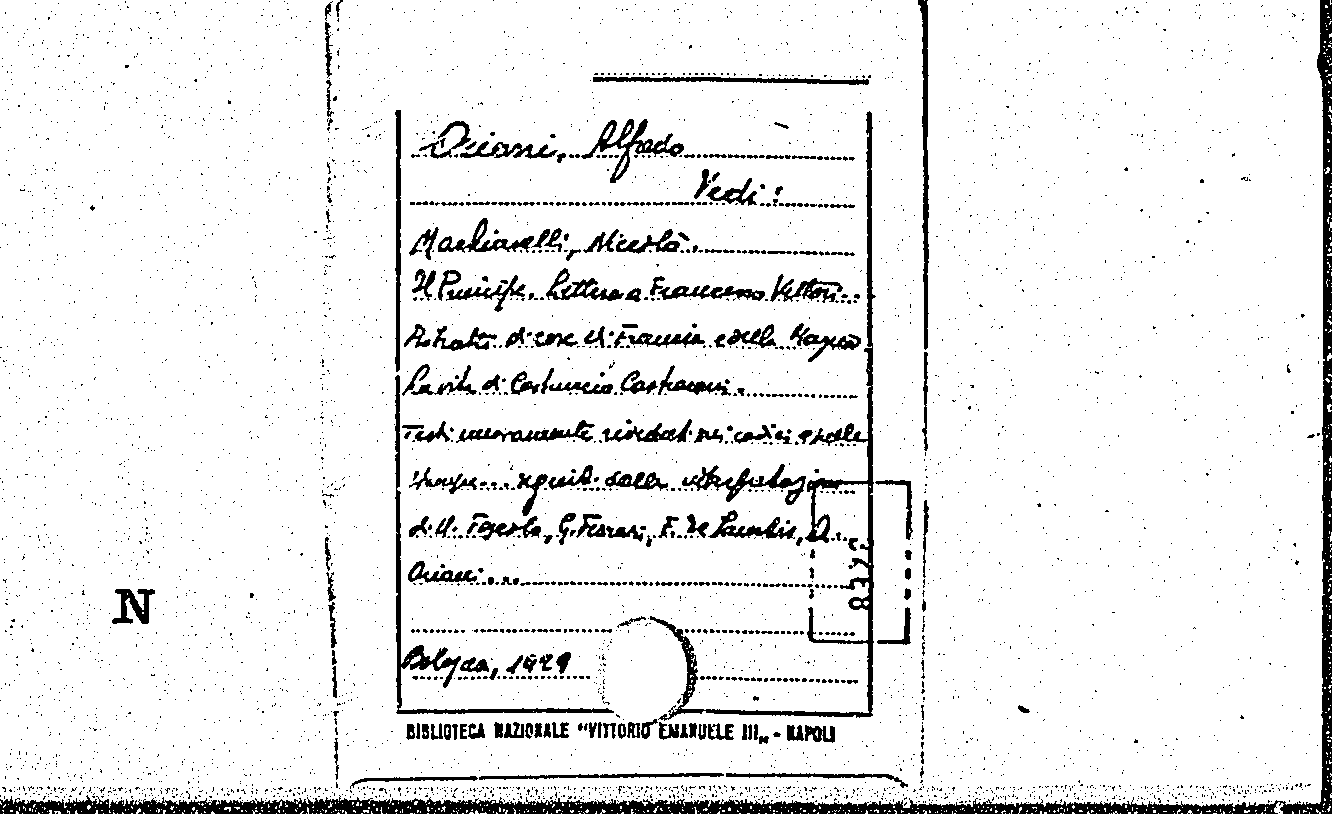 Oriani, Alfredo
Vedi:
Machiavelli, Niccolò.
Il Principe. Lettera a Francesco Vettori..
Ritratti di cose di Francia e della Magna.
La vita di Castruccio Castracani.
Testi nuovamente riveduti nei codici e nelle
stampe... seguiti dalla interpretazione
di G. Ferrari, F. De Sanctis, A..
Oriani...
Bologna, 1929
BIBLIOTECA NAZIONALE "VITTORIO EMANUELE III„ - NAPOLI
N